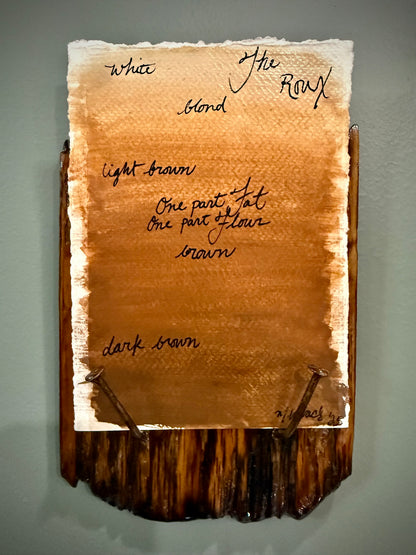 White
The
Roux
blond
light brown
One part Fat
One part Flour
brown
dark brown